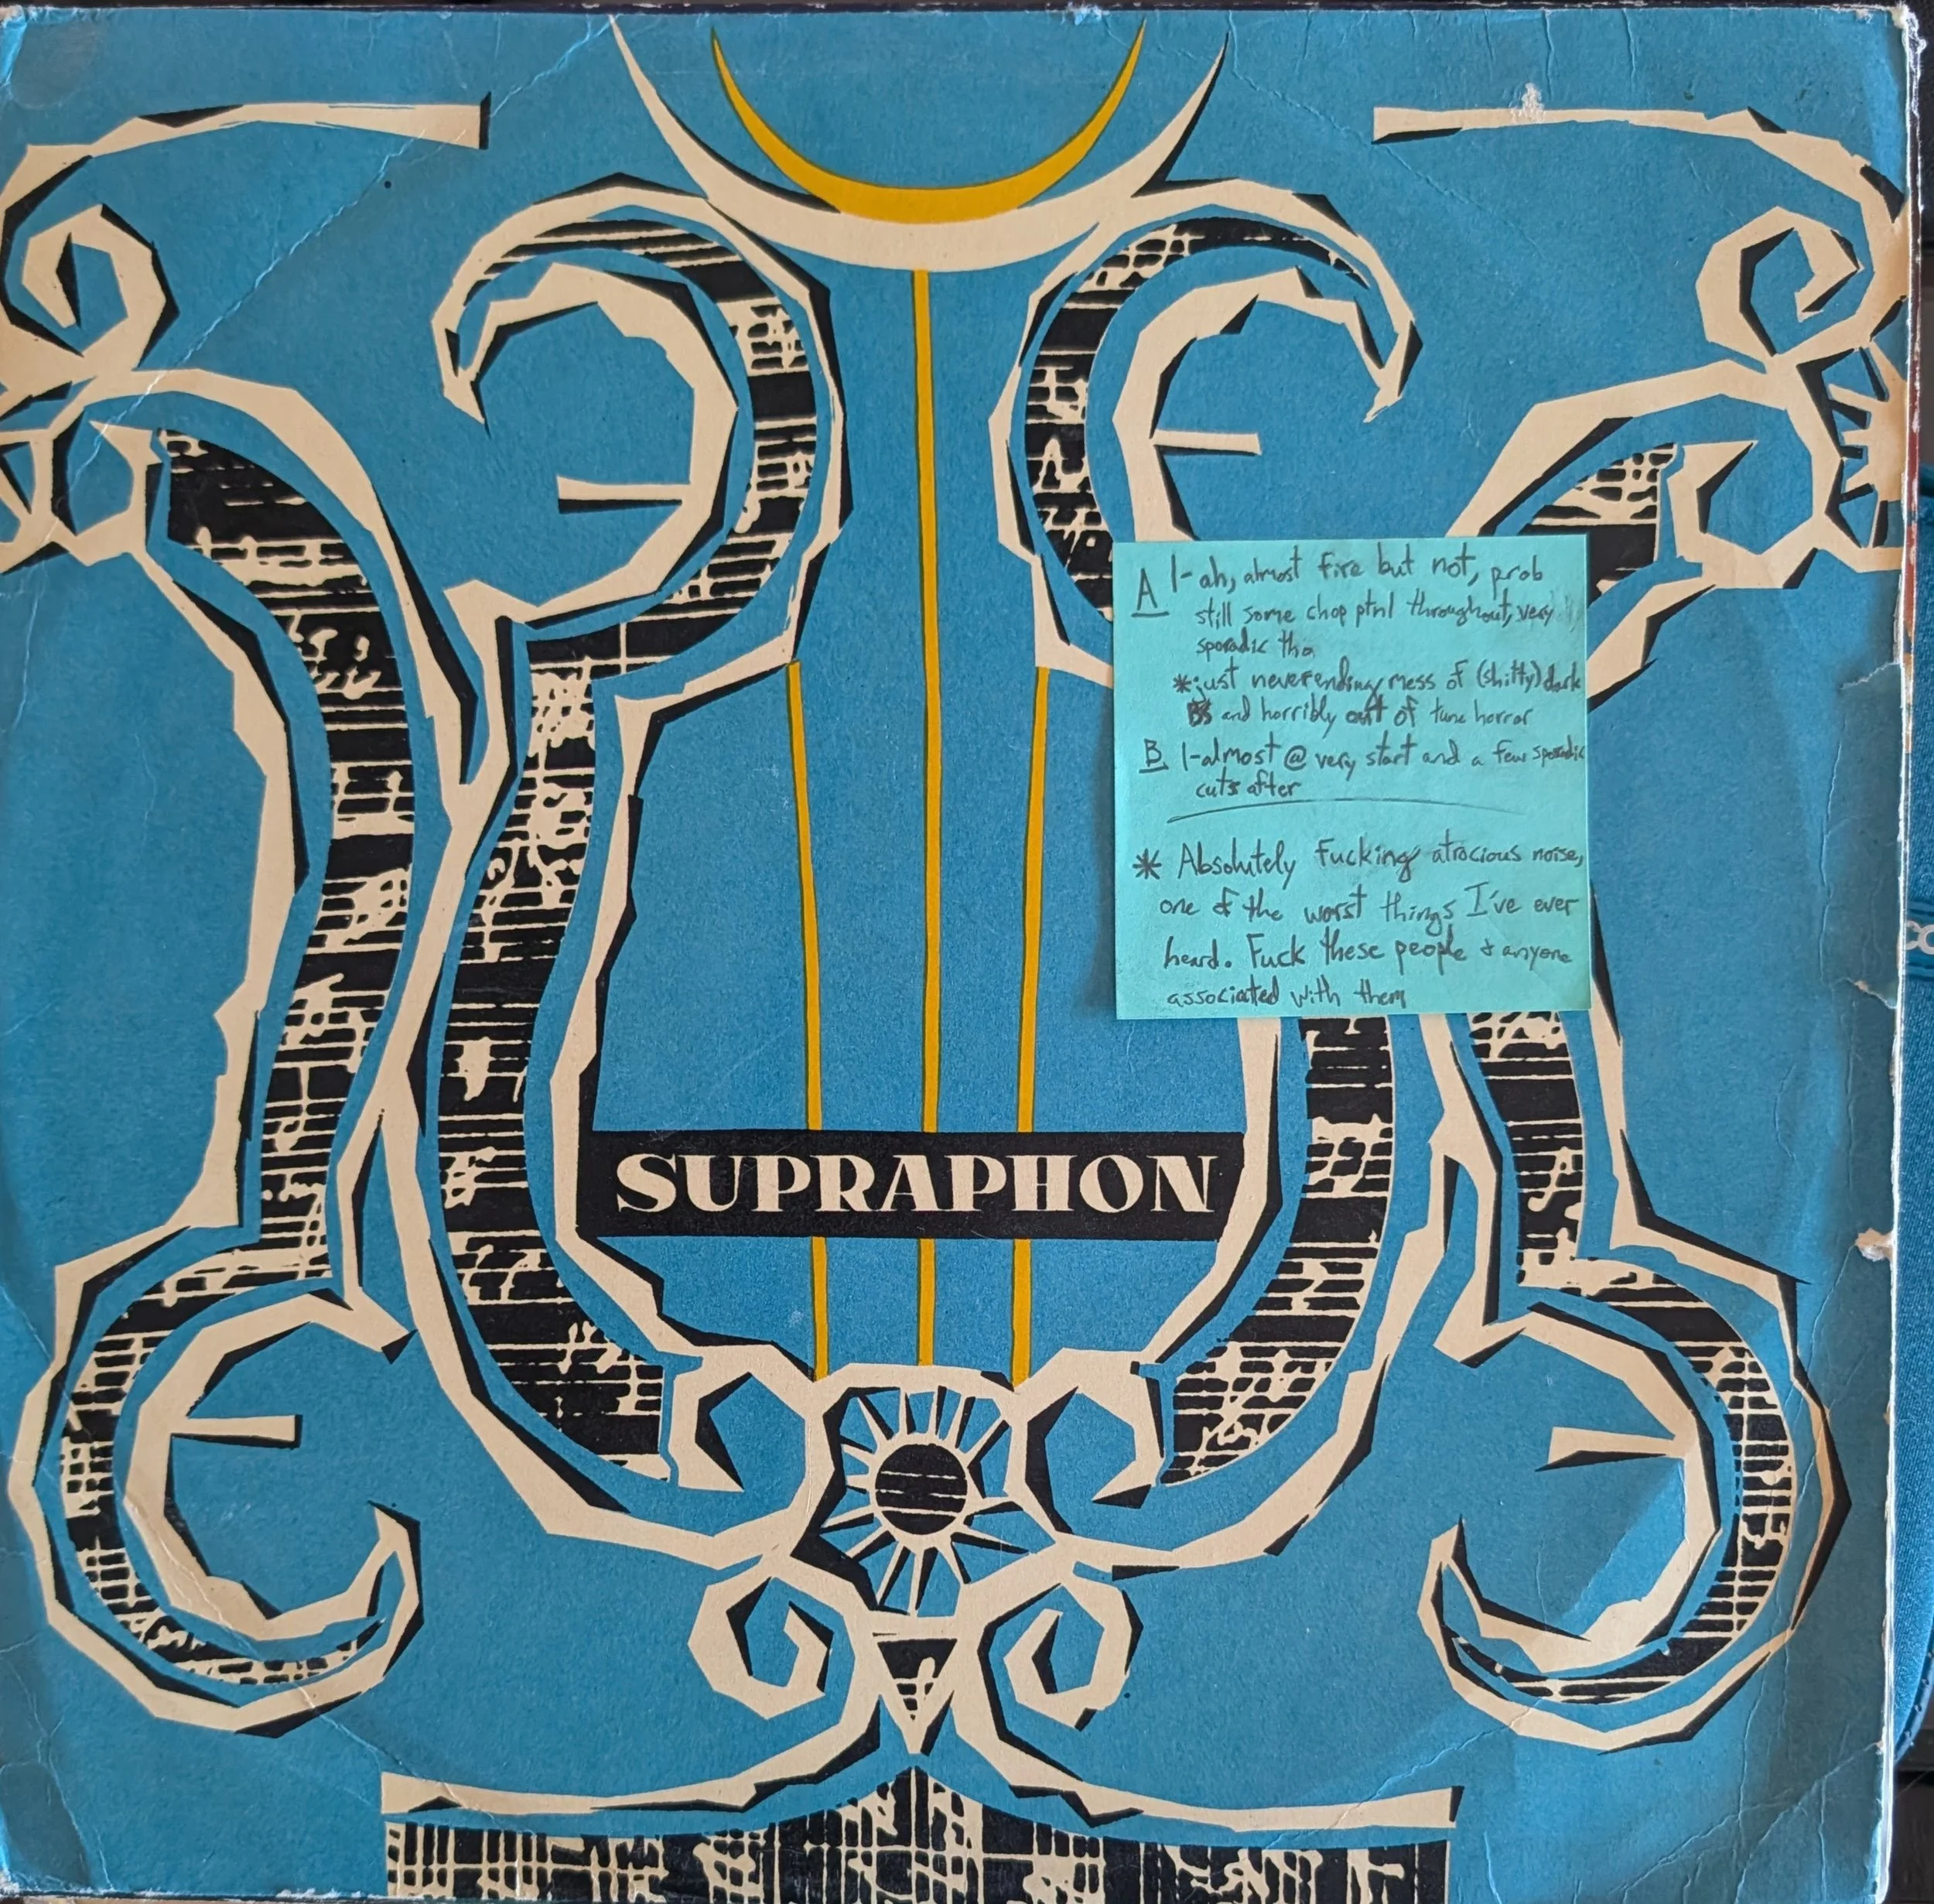 A 1-ah, almost fire but not, prob
still some chop ptnl throughout, very
sporadic tho
*just neverending mess of (shitty) dark
BS and horribly out of tune horror
B 1-almost @ very start and a few sporadic
cuts after
* Absolutely Fucking atrocious noise,
one of the worst things I've ever
heard. Fuck these people & anyone
associated with them
SUPRAPHON